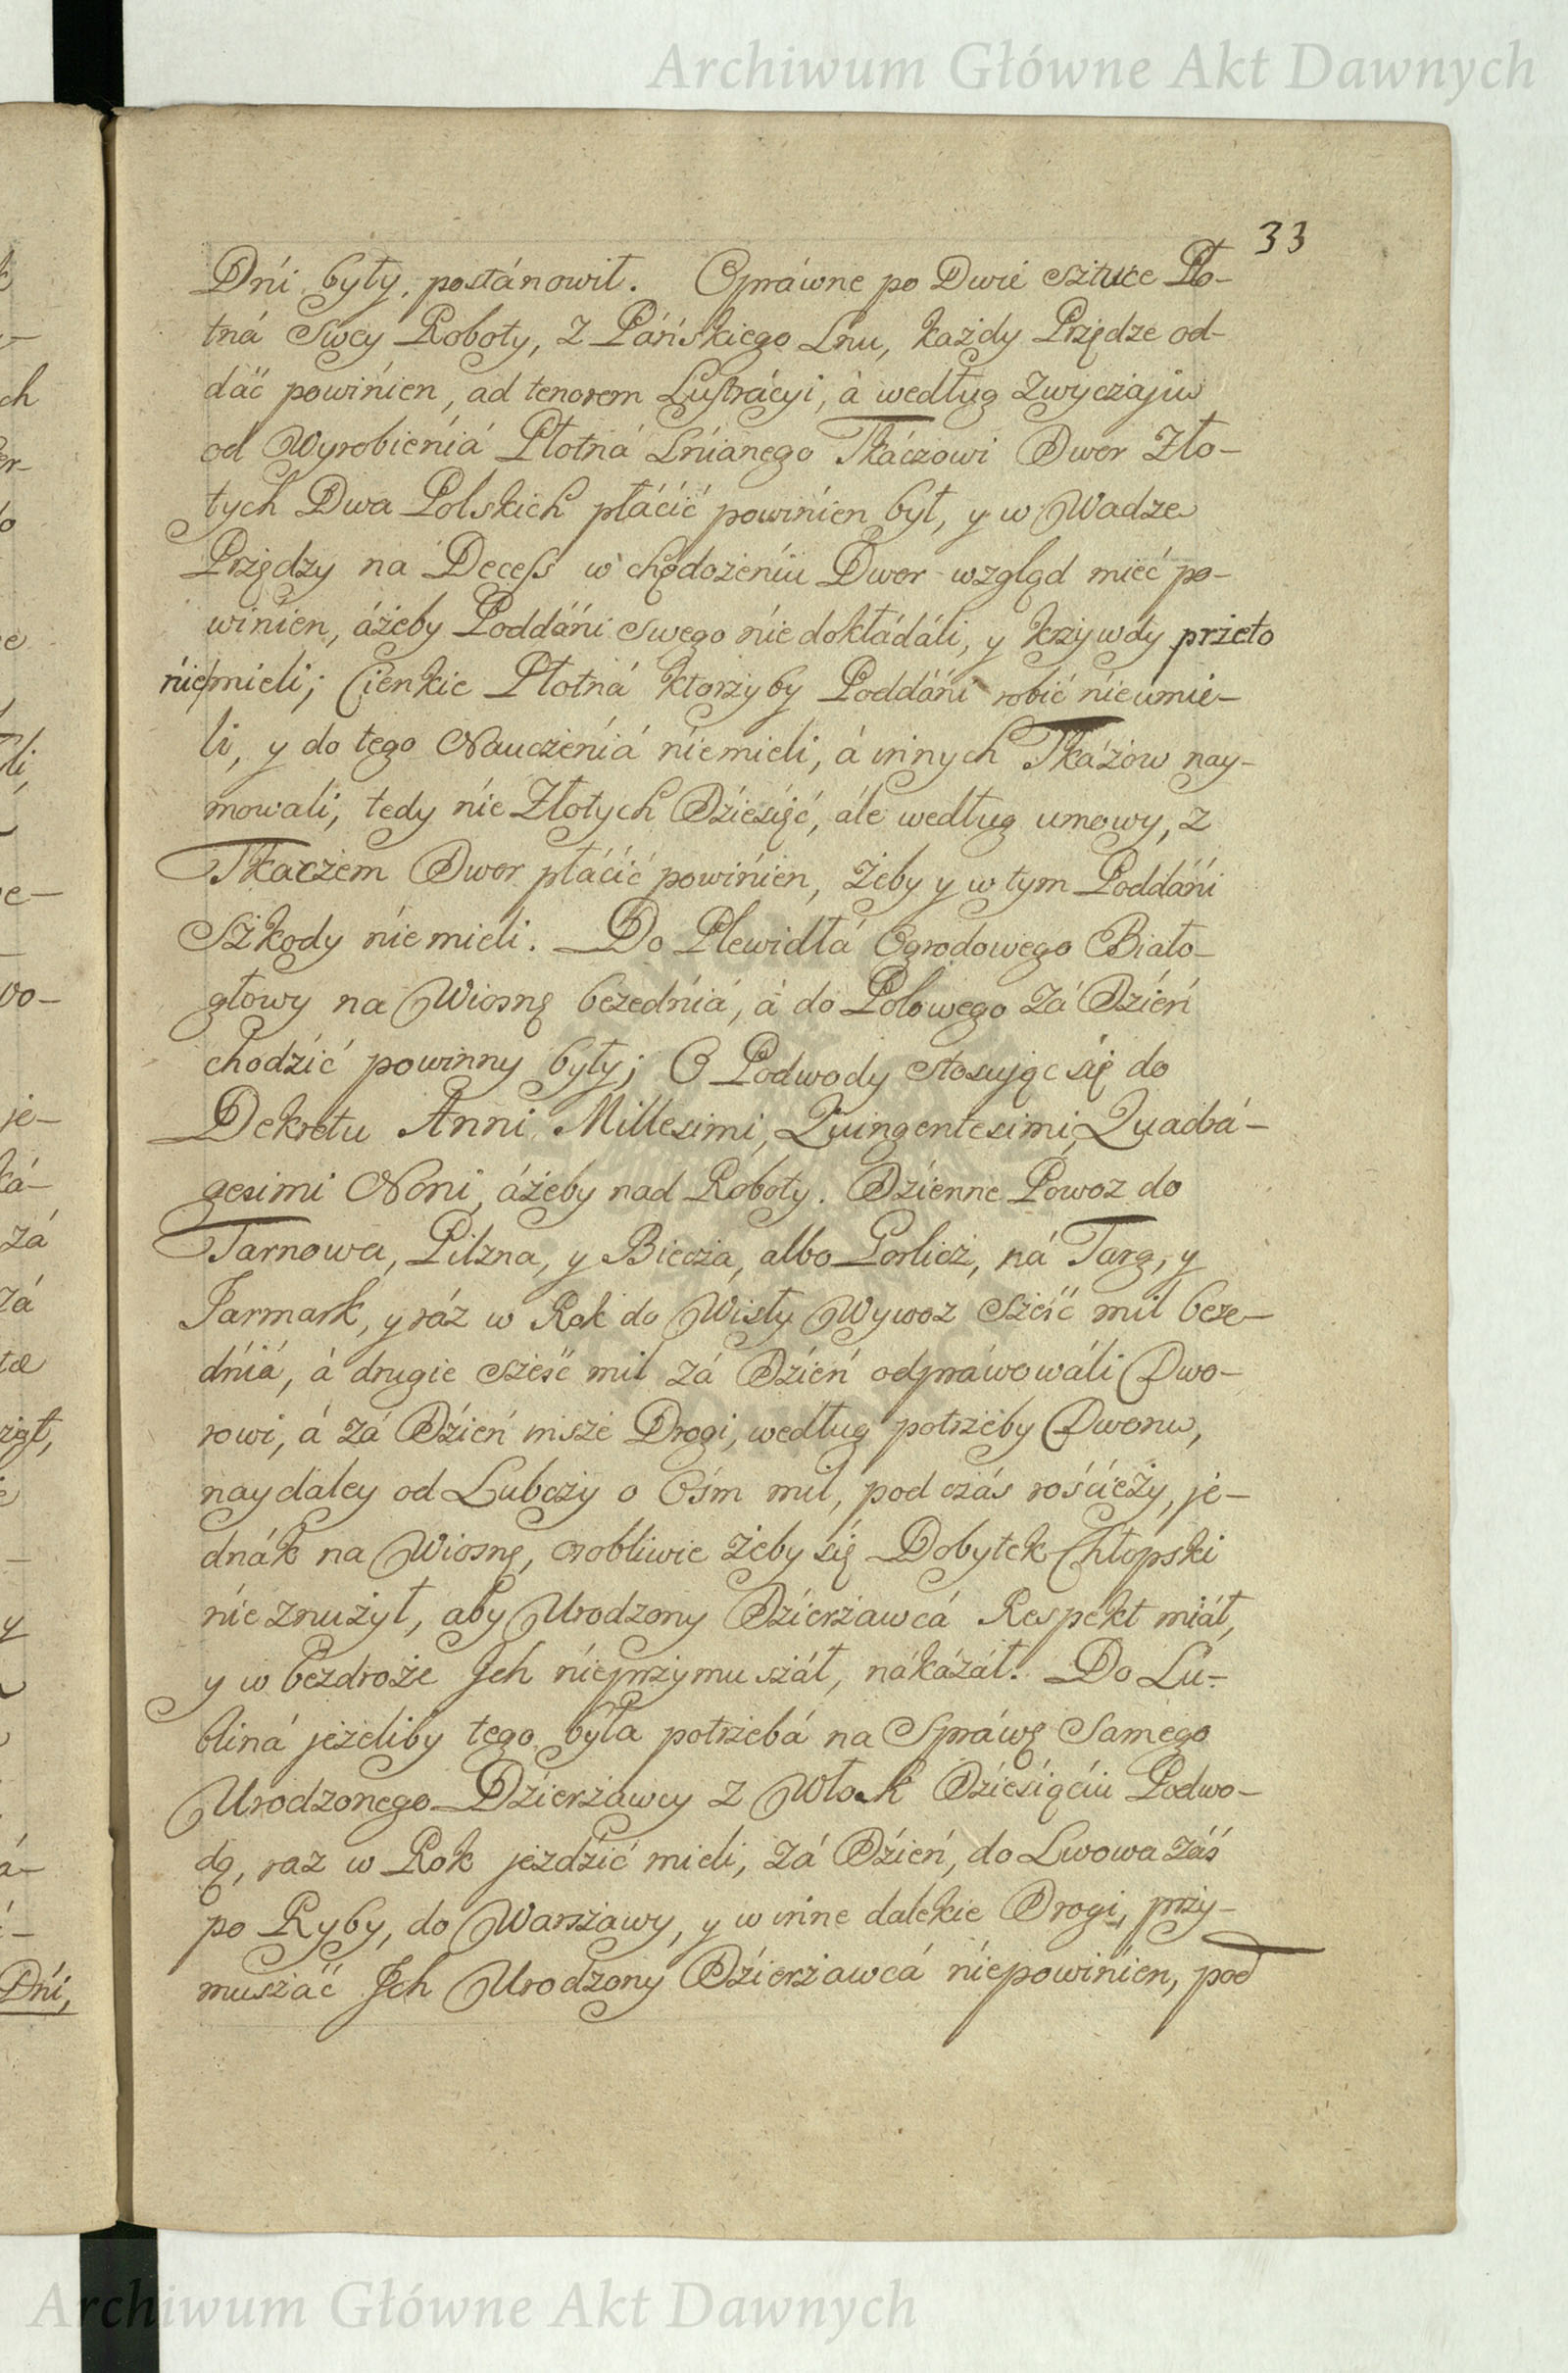 Archiwum Główne Akt Dawnych
33
Dńi były, postánowił. Opráwne po Dwie sztuce Pło-
tná Swey Roboty, z Páńskiego Lnu, każdy Przędze od-
dáć powinien, ad tenorem Lustrácyi, á według zwyczaju
od Wyrobieniá Płotná Lnianego Tkáczowi Dwor Zło-
tych Dwa Polskich płácić powinien był, y w Wadze
Przędzy na Decess w chędożeniu Dwor wzgląd mieć po-
winien, áżeby Poddáni swego nie dokłádáli, y krzywdy przeto
nie mieli; Cienkie Płotná ktorzyby Poddáni robić nieumie-
li, y do tego Nauczeniá niemieli, á innych Tkażow nay-
mowali, tedy nie Złotych Dziesięć, ále według umowy, z
Tkaczem Dwor płácić powinien, żeby y w tym Poddáni
Szkody niemieli. Do Plewidłá Ogrodowego Biało-
głowy na Wiosnę bezedniá, á do Polowego zá Dzień
chodzić powinny były; O Podwody stosując się do
Dekretu Anni Millesimi, Quingentesimi, Quadrá-
gesimi Noni, áżeby nad Roboty. Dzienne Powoz do
Tarnowa, Pilzna, y Biecza, albo Gorlicz, ná Targ, y
Jarmark, y ráz w Rok do Wisły Wywoz sześć mil beze-
dniá, á drugie sześć mil zá Dzień odpráwowáli Dwo-
rowi, á zá Dzień insze Drogi, według potrzeby Dworu,
naydaley od Lubczy o Ośm mil, pod czás rościeży, je-
dnák na Wiosnę, osobliwie żeby się Dobytek Chłopski
nie znużył, aby Urodzony Dzierżawcá Respekt miáł,
y w bezdroże Jch nieprzymuszáł, nákázáł. Do Lu-
bliná jeżeliby tego była potrzebá na Spráwę Samego
Urodzonego Dzierżawcy z Włok Dziesięciu Podwo-
dą, raz w Rok jezdzić mieli, zá Dzień, do Lwowa záś
po Ryby, do Warszawy, y w inne dalekie Drogi, przy-
muszáć Jch Urodzony Dzierżawcá niepowinien, pod
Archiwum Główne Akt Dawnych